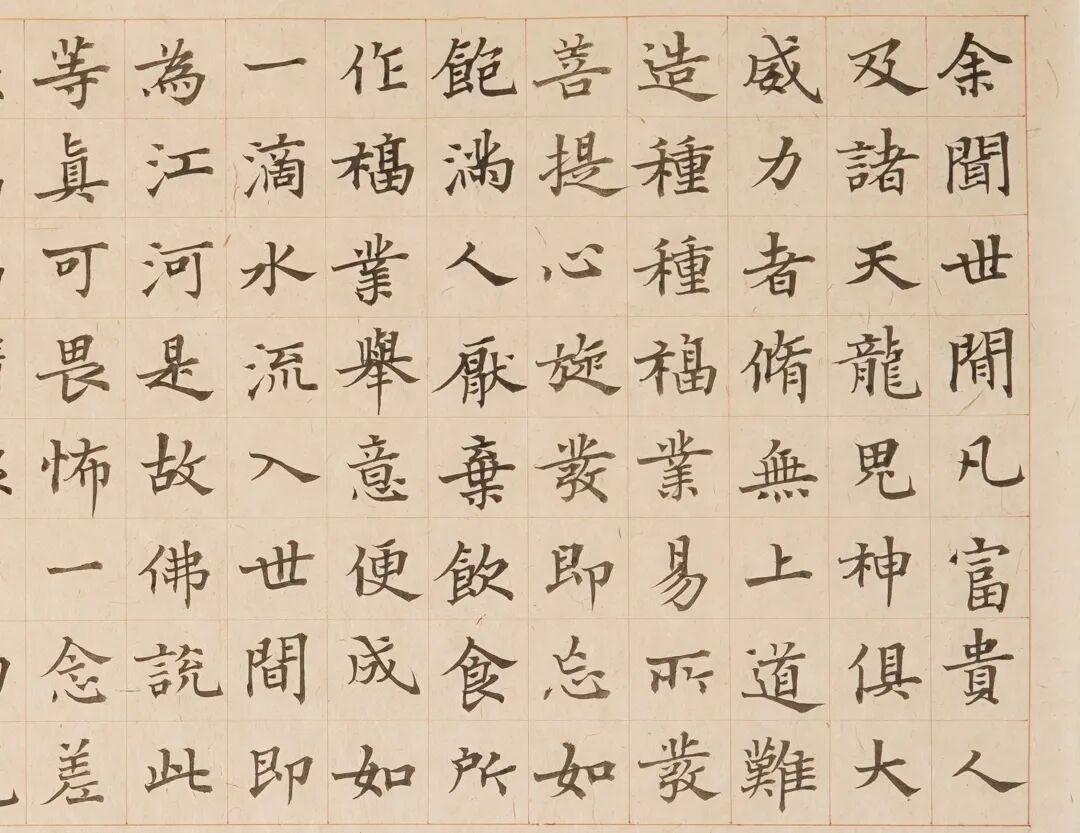 余聞世間凡富貴人
及諸天龍鬼神俱大
威力者脩無上道難
造種種福業易所發
菩提心旋發即忘如
飽滿人厭棄飲食所
作福業舉意便成如
一滴水流入世間即
為江河是故佛說此
等真可畏怖一念差